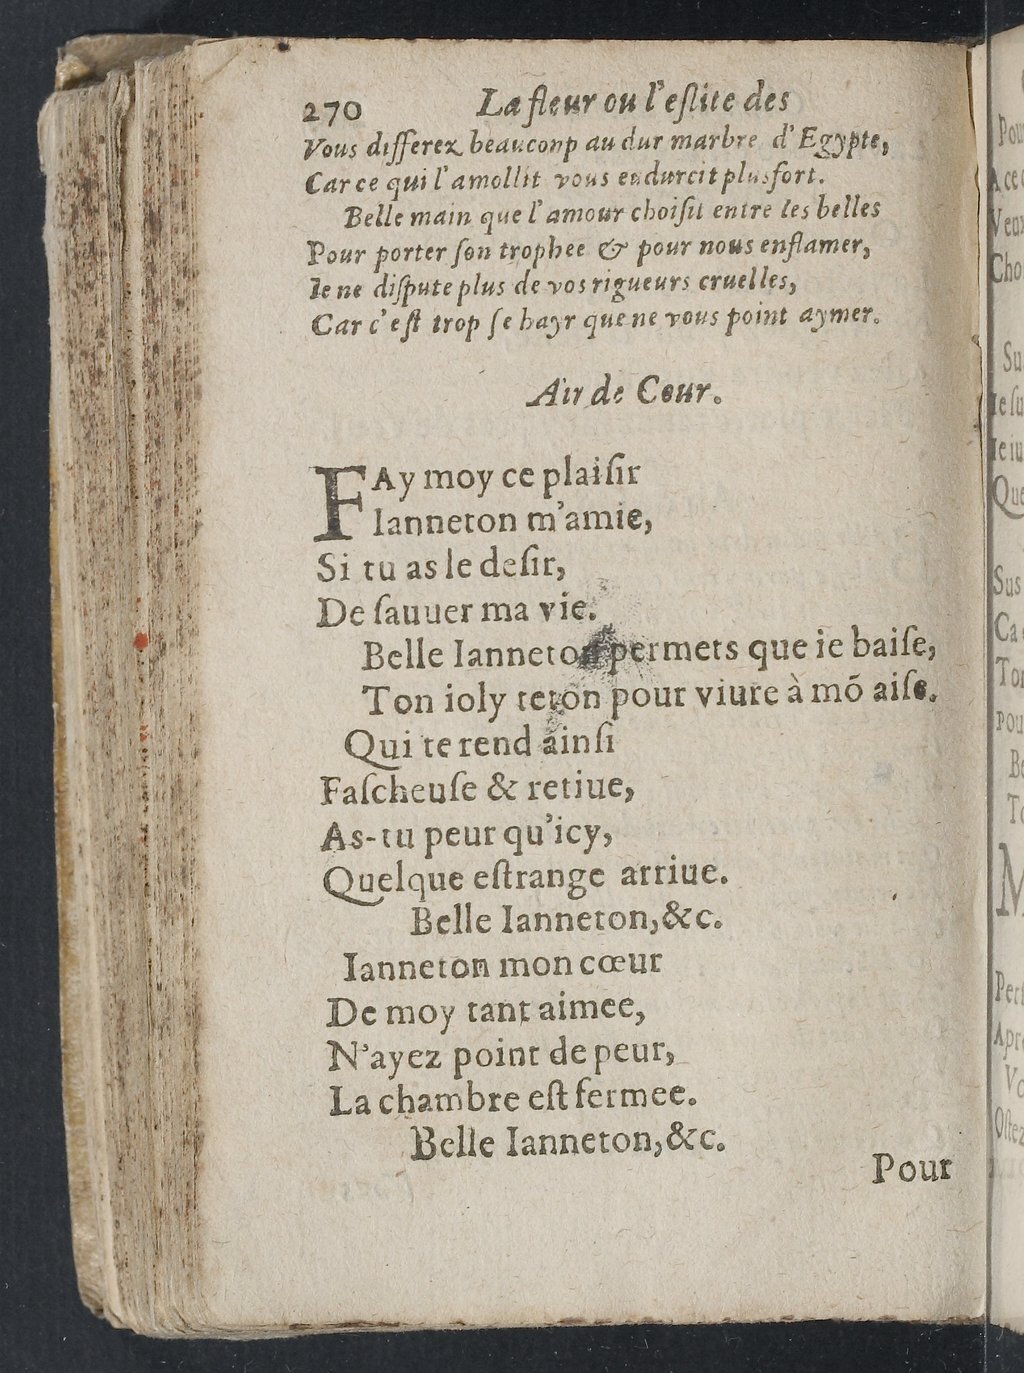 270 La fleur ou l'eslite des
Vous differez beauconp au dur marbre d'Egypte,
Car ce qui l'amollit vous endurcit plus fort.
Belle main que l'amour choiſit entre les belles
Pour porter ſon trophee & pour nous enflamer,
Ie ne diſpute plus de vos rigueurs cruelles,
Car c'eſt trop ſe hayr que ne vous point aymer.
Air de Cour.
FAy moy ce plaiſir
Ianneton m'amie,
Si tu as le deſir,
De ſauuer ma vie.
Belle Ianneton permets que ie baiſe,
Ton ioly teton pour viure à mõ aiſe.
Qui te rend ainſi
Faſcheuſe & retiue,
As-tu peur qu'icy,
Quelque eſtrange arriue.
Belle Ianneton, &c.
Ianneton mon cœur
De moy tant aimee,
N'ayez point de peur,
La chambre eſt fermee.
Belle Ianneton, &c.
Pour